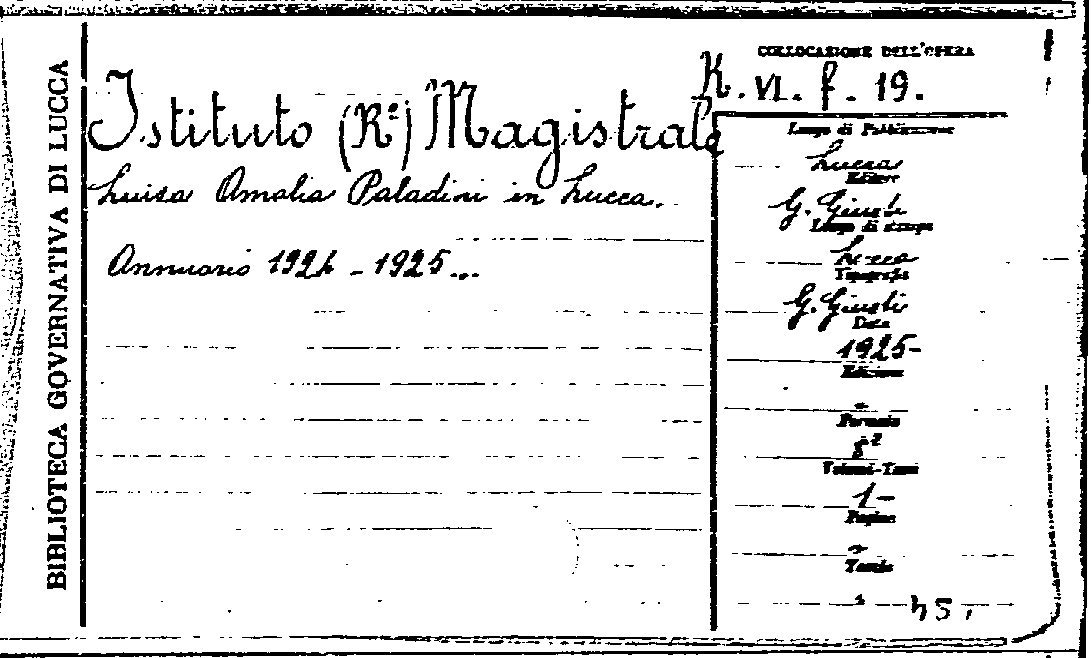 BIBLIOTECA GOVERNATIVA DI LUCCA
Istituto (R.º) Magistrale
Luisa Amalia Paladini in Lucca.
Annuario 1924 - 1925...
COLLOCAZIONE DELL'OPERA
K. VI. f. 19.
Luogo di Pubblicazione
Lucca
Editore
G. Giusti
Luogo di stampa
Lucca
Tipografia
G. Giusti
Data
1925-
Edizione
-
Formato
8º
Volumi-Tomi
1-
Pagine
-
Tavole
-